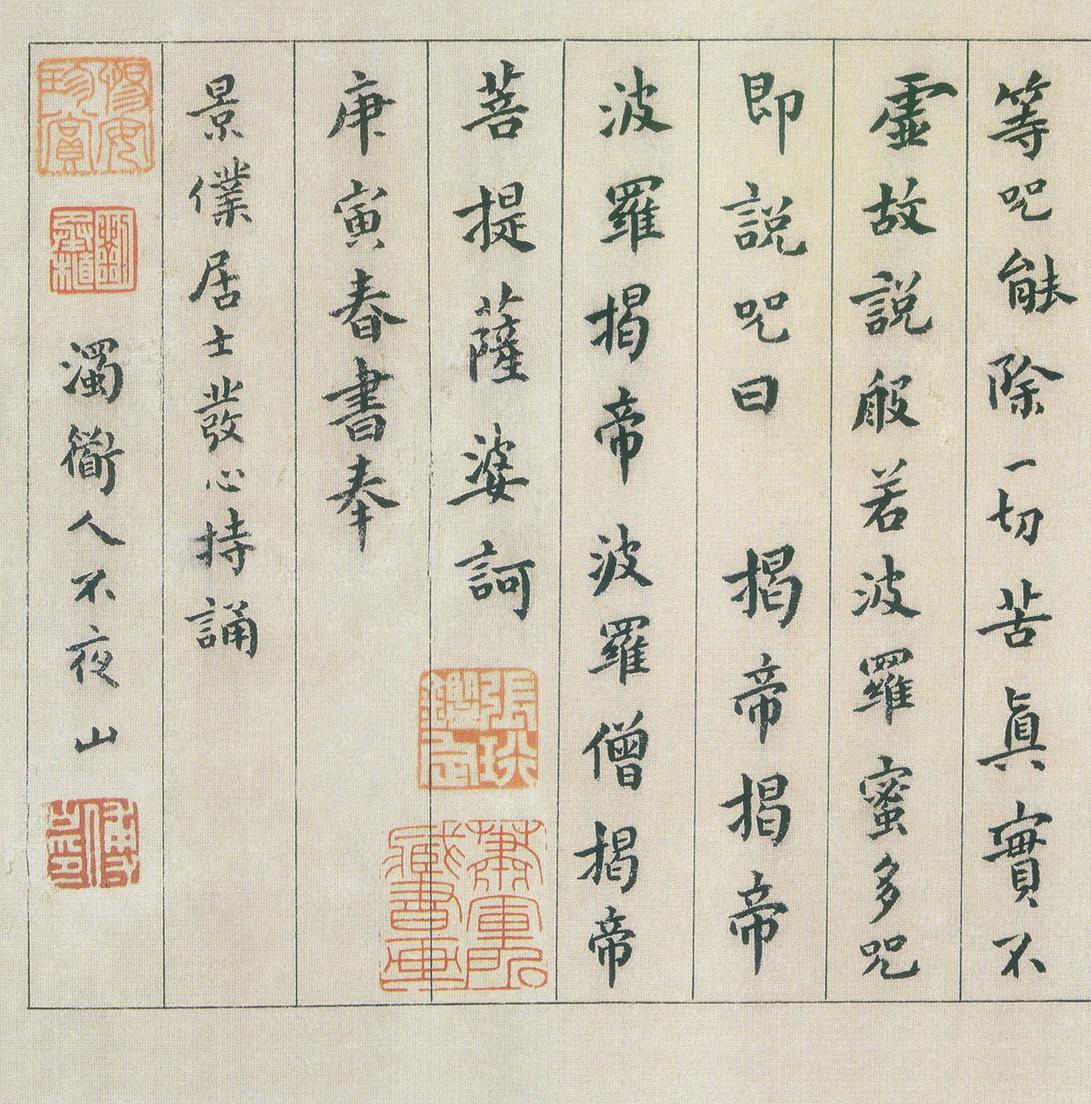 等咒能除一切苦眞實不
虛故説般若波羅蜜多咒
即説咒曰　揭帝揭帝
波羅揭帝波羅僧揭帝
菩提薩婆訶
蕭軍所藏書畫
庚寅春書奉
景僕居士發心持誦
惕安珍賞
濁衜人不夜山